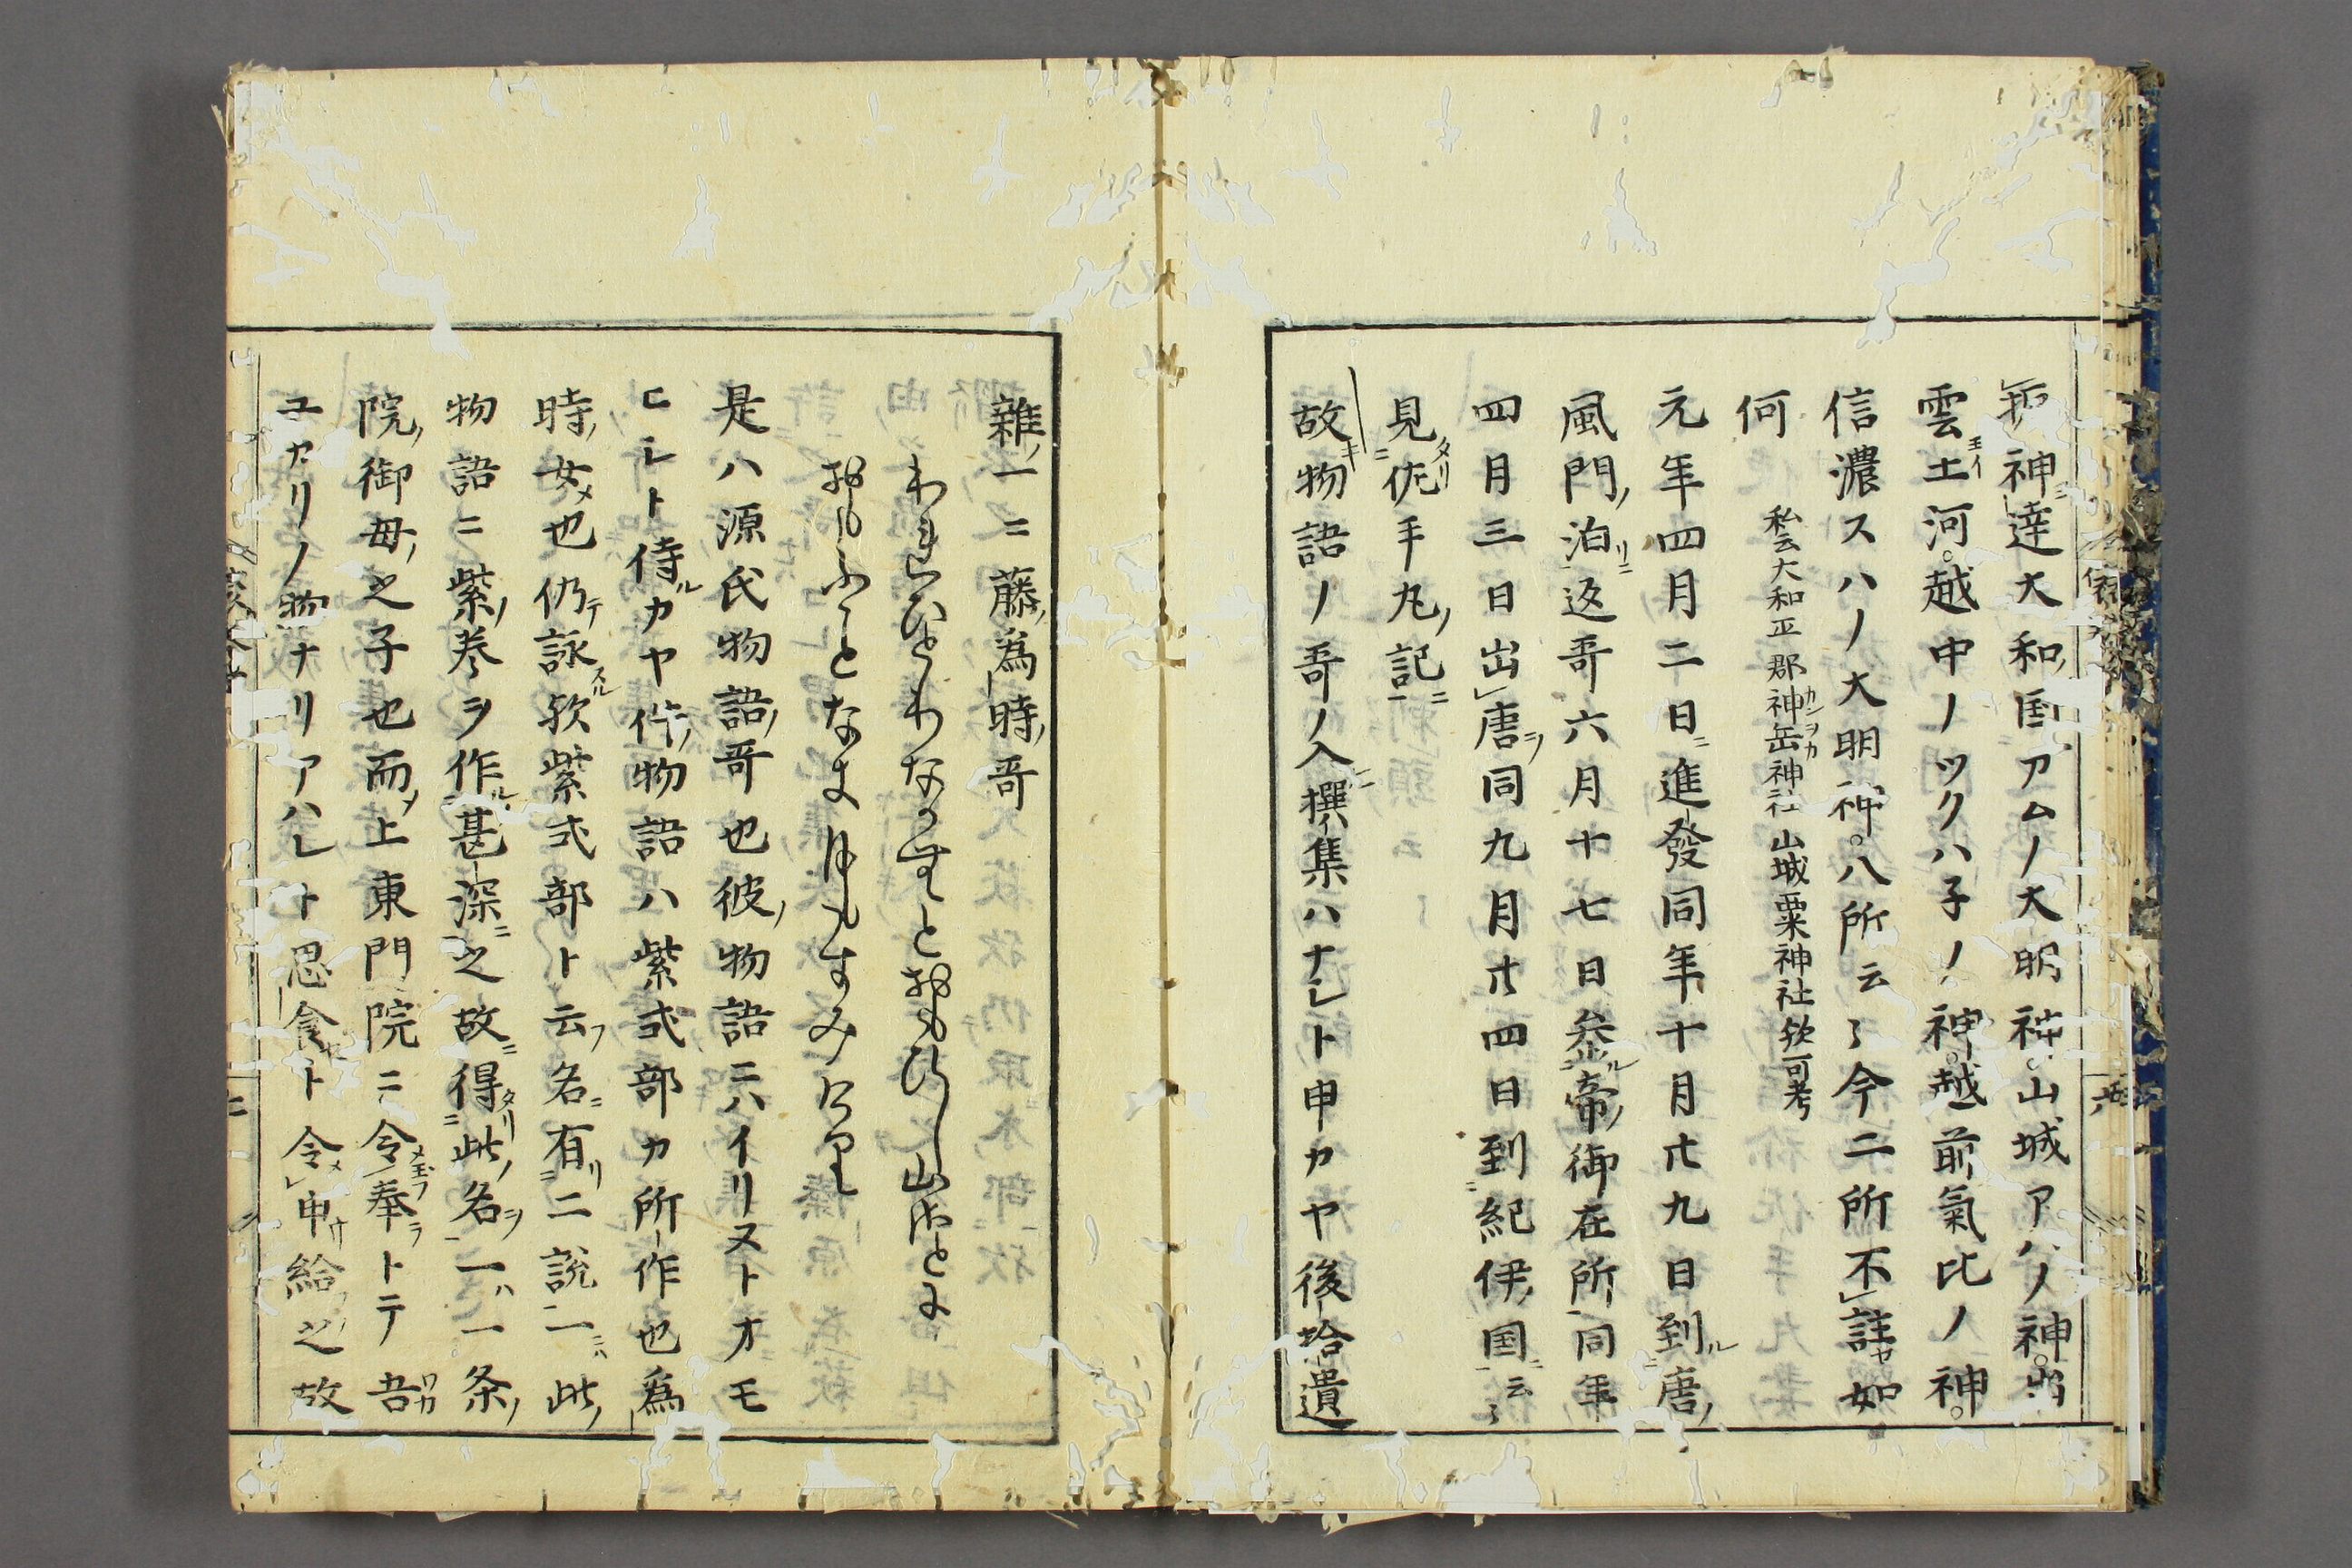 神達大和国アムノ大明神。山城アハノ神。出
雲土河。越中ノツクハ子ノ神。越前氣比ノ神。
信濃スハノ大明神。八所云々今二所不註如
何
私云大和正郡神缶神社山城粟神社欤可考
元年四月二日進發同年十月廿九日到唐
風門泊返哥六月十七日参帝御在所同年
四月三日出唐同九月廿四日到紀伊国云々
見佐手丸記
故物語ノ哥ノ入撰集ハナシト申カヤ後拾遺
雜一ニ藤爲時哥
われひとりなかむとおもひし山さとに
おもふことなき月もすみけり
是ハ源氏物語哥也彼物語ニハイリヌトオモ
ヒシト侍カヤ件物語ハ紫式部カ所作也爲
時女也仍詠欤紫式部ト云名有二説一此
物語ニ紫巻ヲ作甚深之故得此名一一条
院御母之子也而上東門院ニ令奉トテ吾
ユカリノ物ナリアハレト思食ト令申給之故